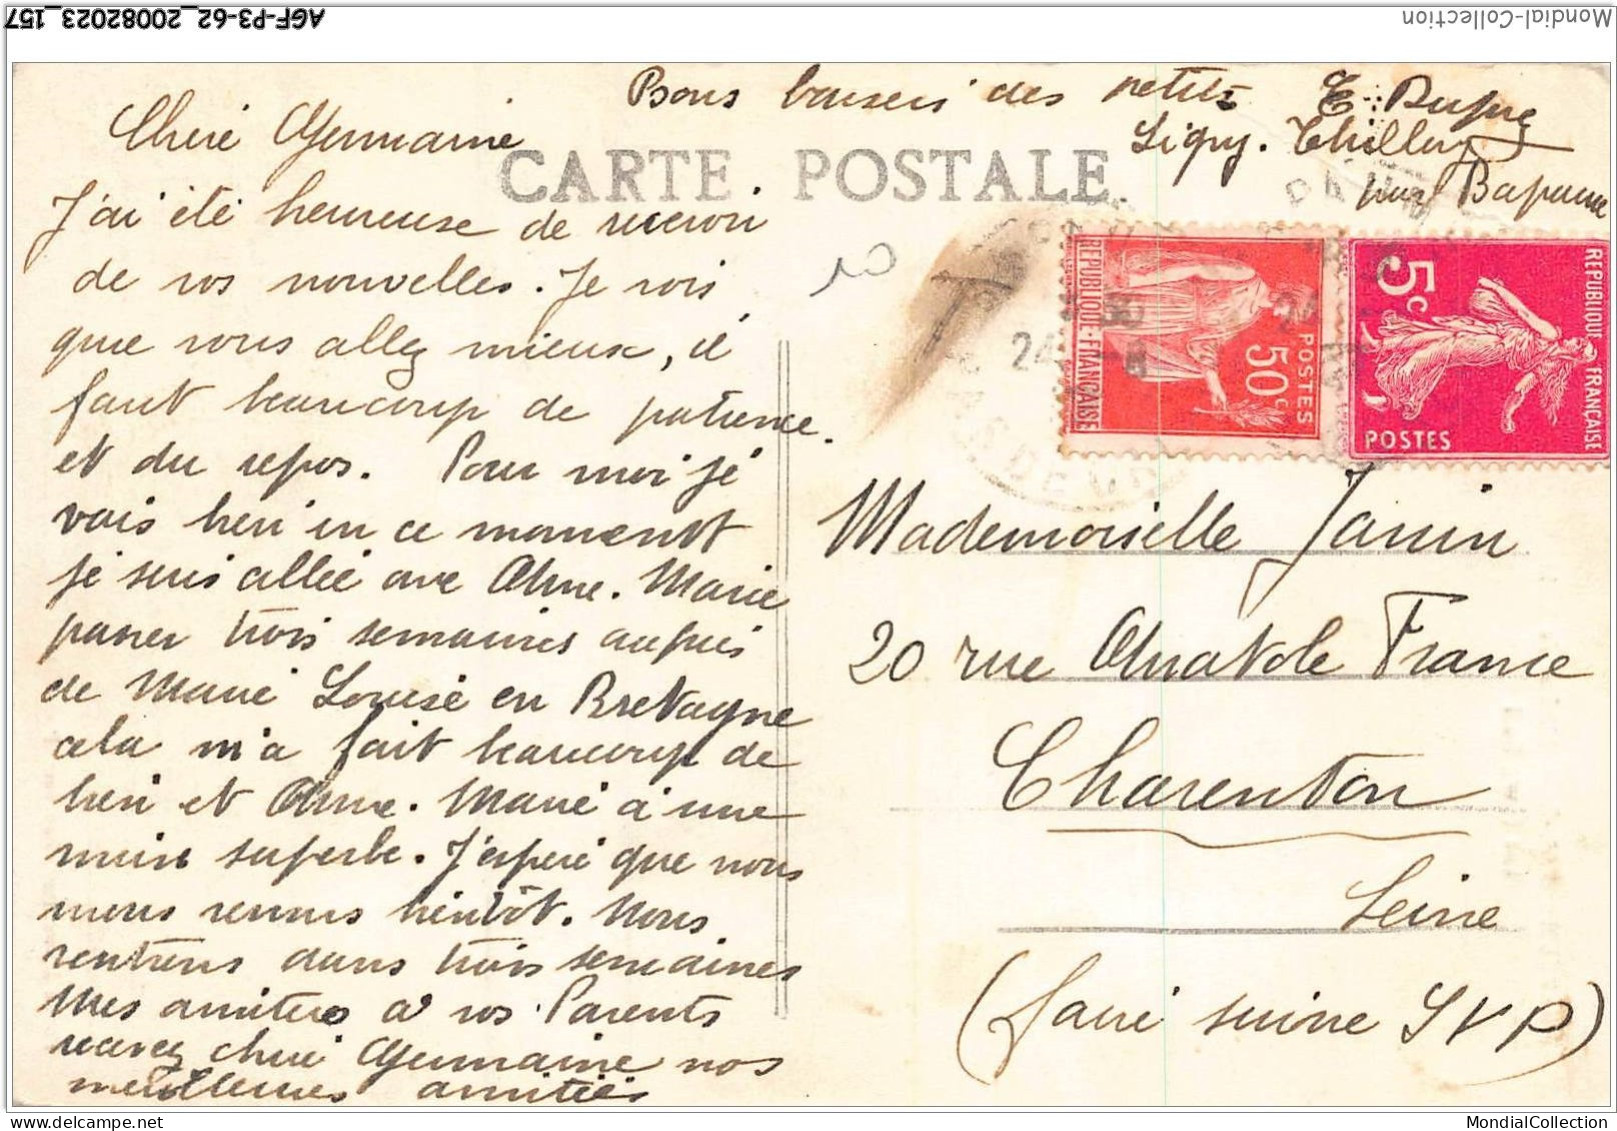 AGF-P3-62_20082023_157
Mondial-Collection
Bons baisers des petits
E. Dupue
Ligny. Thilloy
par Bapaume
CARTE POSTALE
Chere Germaine
J'ai été heureuse de recevoir
de vos nouvelles. Je vois
que vous allez mieux, il
faut beaucoup de patience
et du repos. Pour moi je
vais bien en ce moment
je suis allée avec Anne. Marie
passer trois semaines auprès
de Marie Louise en Bretagne
cela m'a fait beaucoup de
bien et Anne. Marie à une
mine superbe. J'espere que nous
nous verrons bientôt. Nous
rentrons dans trois semaines
Mes amities a vos Parents
recevez chere Germaine nos
meilleures amitiés
10
REPUBLIQUE-FRANÇAISE
50c
POSTES
REPUBLIQUE FRANÇAISE
5c
POSTES
24
Mademoiselle Janin
20 rue Anatole France
Charenton
Seine
(faire suivre SVP)
MondialCollection